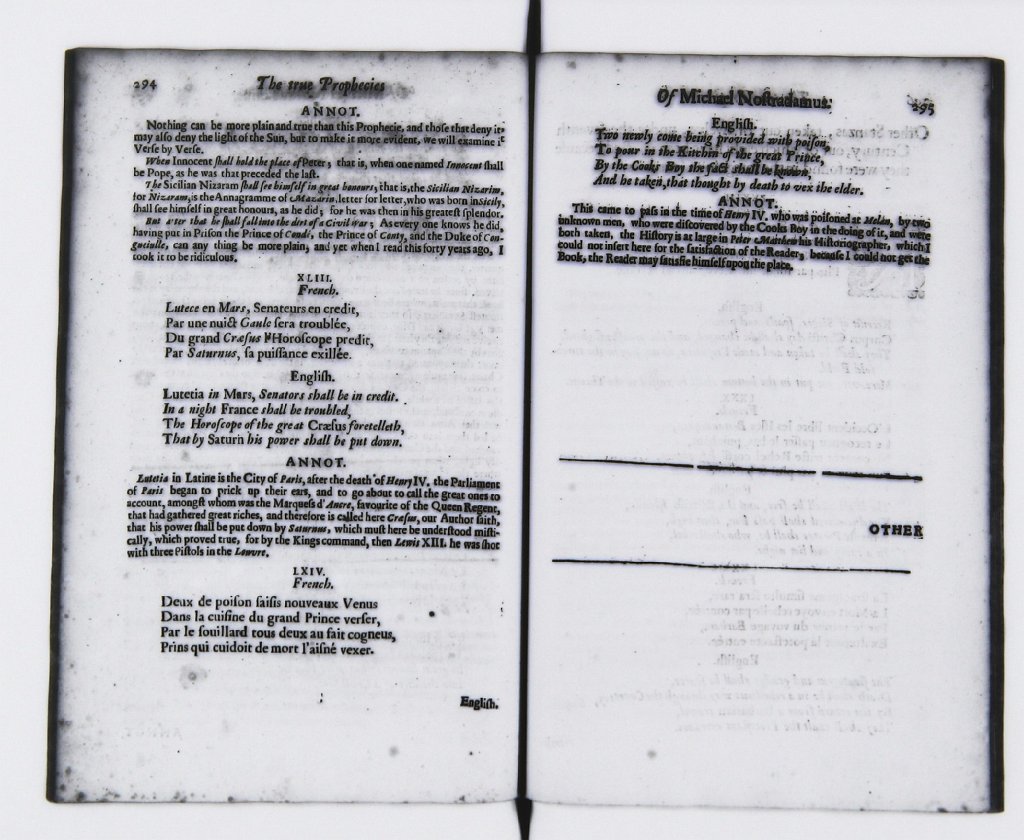 294
The true Prophecies
ANNOT.
Nothing can be more plain and true than this Prophecie, and those that deny it
may also deny the light of the Sun, but to make it more evident, we will examine it
Verse by Verse.
When Innocent shall hold the place of Peter; that is, when one named Innocent shall
be Pope, as he was that preceded the last.
The Sicilian Nizaram shall see himself in great honours; that is, the Sicilian Nizarim,
for Nizaram, is the Annagramme of Mazarin, letter for letter, who was born in Sicily,
shall see himself in great honours, as he did; for he was then in his greatest splendor.
But after that he shall fall into the dirt of a Civil war; As every one knows he did,
having put in Prison the Prince of Conde, the Prince of Conty, and the Duke of Lon-
gueville, can any thing be more plain, and yet when I read this forty years ago, I
took it to be ridiculous.
XLIII.
French.
Lutece en Mars, Senateurs en credit,
Par une nuict Gaule sera troublée,
Du grand Cræsus l'Horoscope predit,
Par Saturnus, sa puissance exillée.
English.
Lutetia in Mars, Senators shall be in credit.
In a night France shall be troubled,
The Horoscope of the great Cræsus foretelleth,
That by Saturn his power shall be put down.
ANNOT.
Lutetia in Latine is the City of Paris, after the death of Henry IV. the Parliament
of Paris began to prick up their ears, and to go about to call the great ones to
account, amongst whom was the Marquess d'Ancre, favourite of the Queen Regent,
that had gathered great riches, and therefore is called here Cræsus, our Author saith,
that his power shall be put down by Saturnus, which must here be understood misti-
cally, which proved true, for by the Kings command, then Lewis XIII. he was shot
with three Pistols in the Louvre.
LXIV.
French.
Deux de poison saisis nouveaux Venus
Dans la cuisine du grand Prince verser,
Par le souillard tous deux au fait cogneus,
Prins qui cuidoit de mort l'aisné vexer.
English.
Of Michael Nostradamus.
295
English.
Two newly come being provided with poison,
To pour in the Kitchin of the great Prince,
By the Cooks Boy the fact shall be known,
And he taken, that thought by death to vex the elder.
ANNOT.
This came to pass in the time of Henry IV. who was poisoned at Melun, by two
unknown men, who were discovered by the Cooks Boy in the doing of it, and were
both taken, the History is at large in Peter Matthew his Historiographer, which I
could not insert here for the satisfaction of the Reader, because I could not get the
Book, the Reader may satisfie himself upon the place.
OTHER